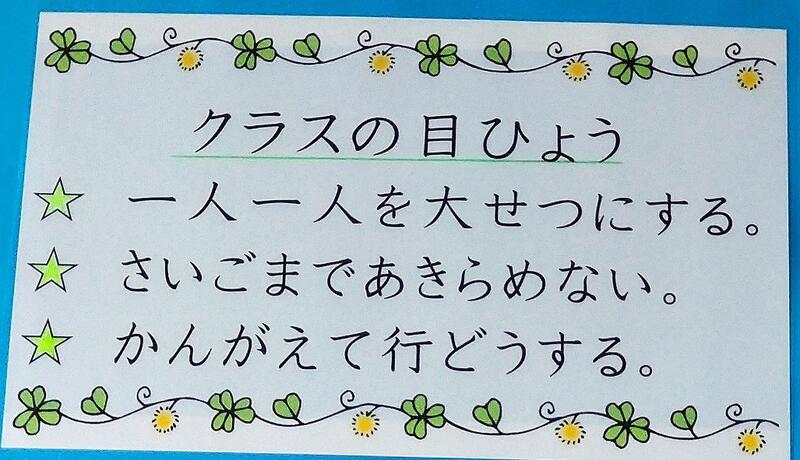 クラスの目ひょう
一人一人を大せつにする。
さいごまであきらめない。
かんがえて行どうする。